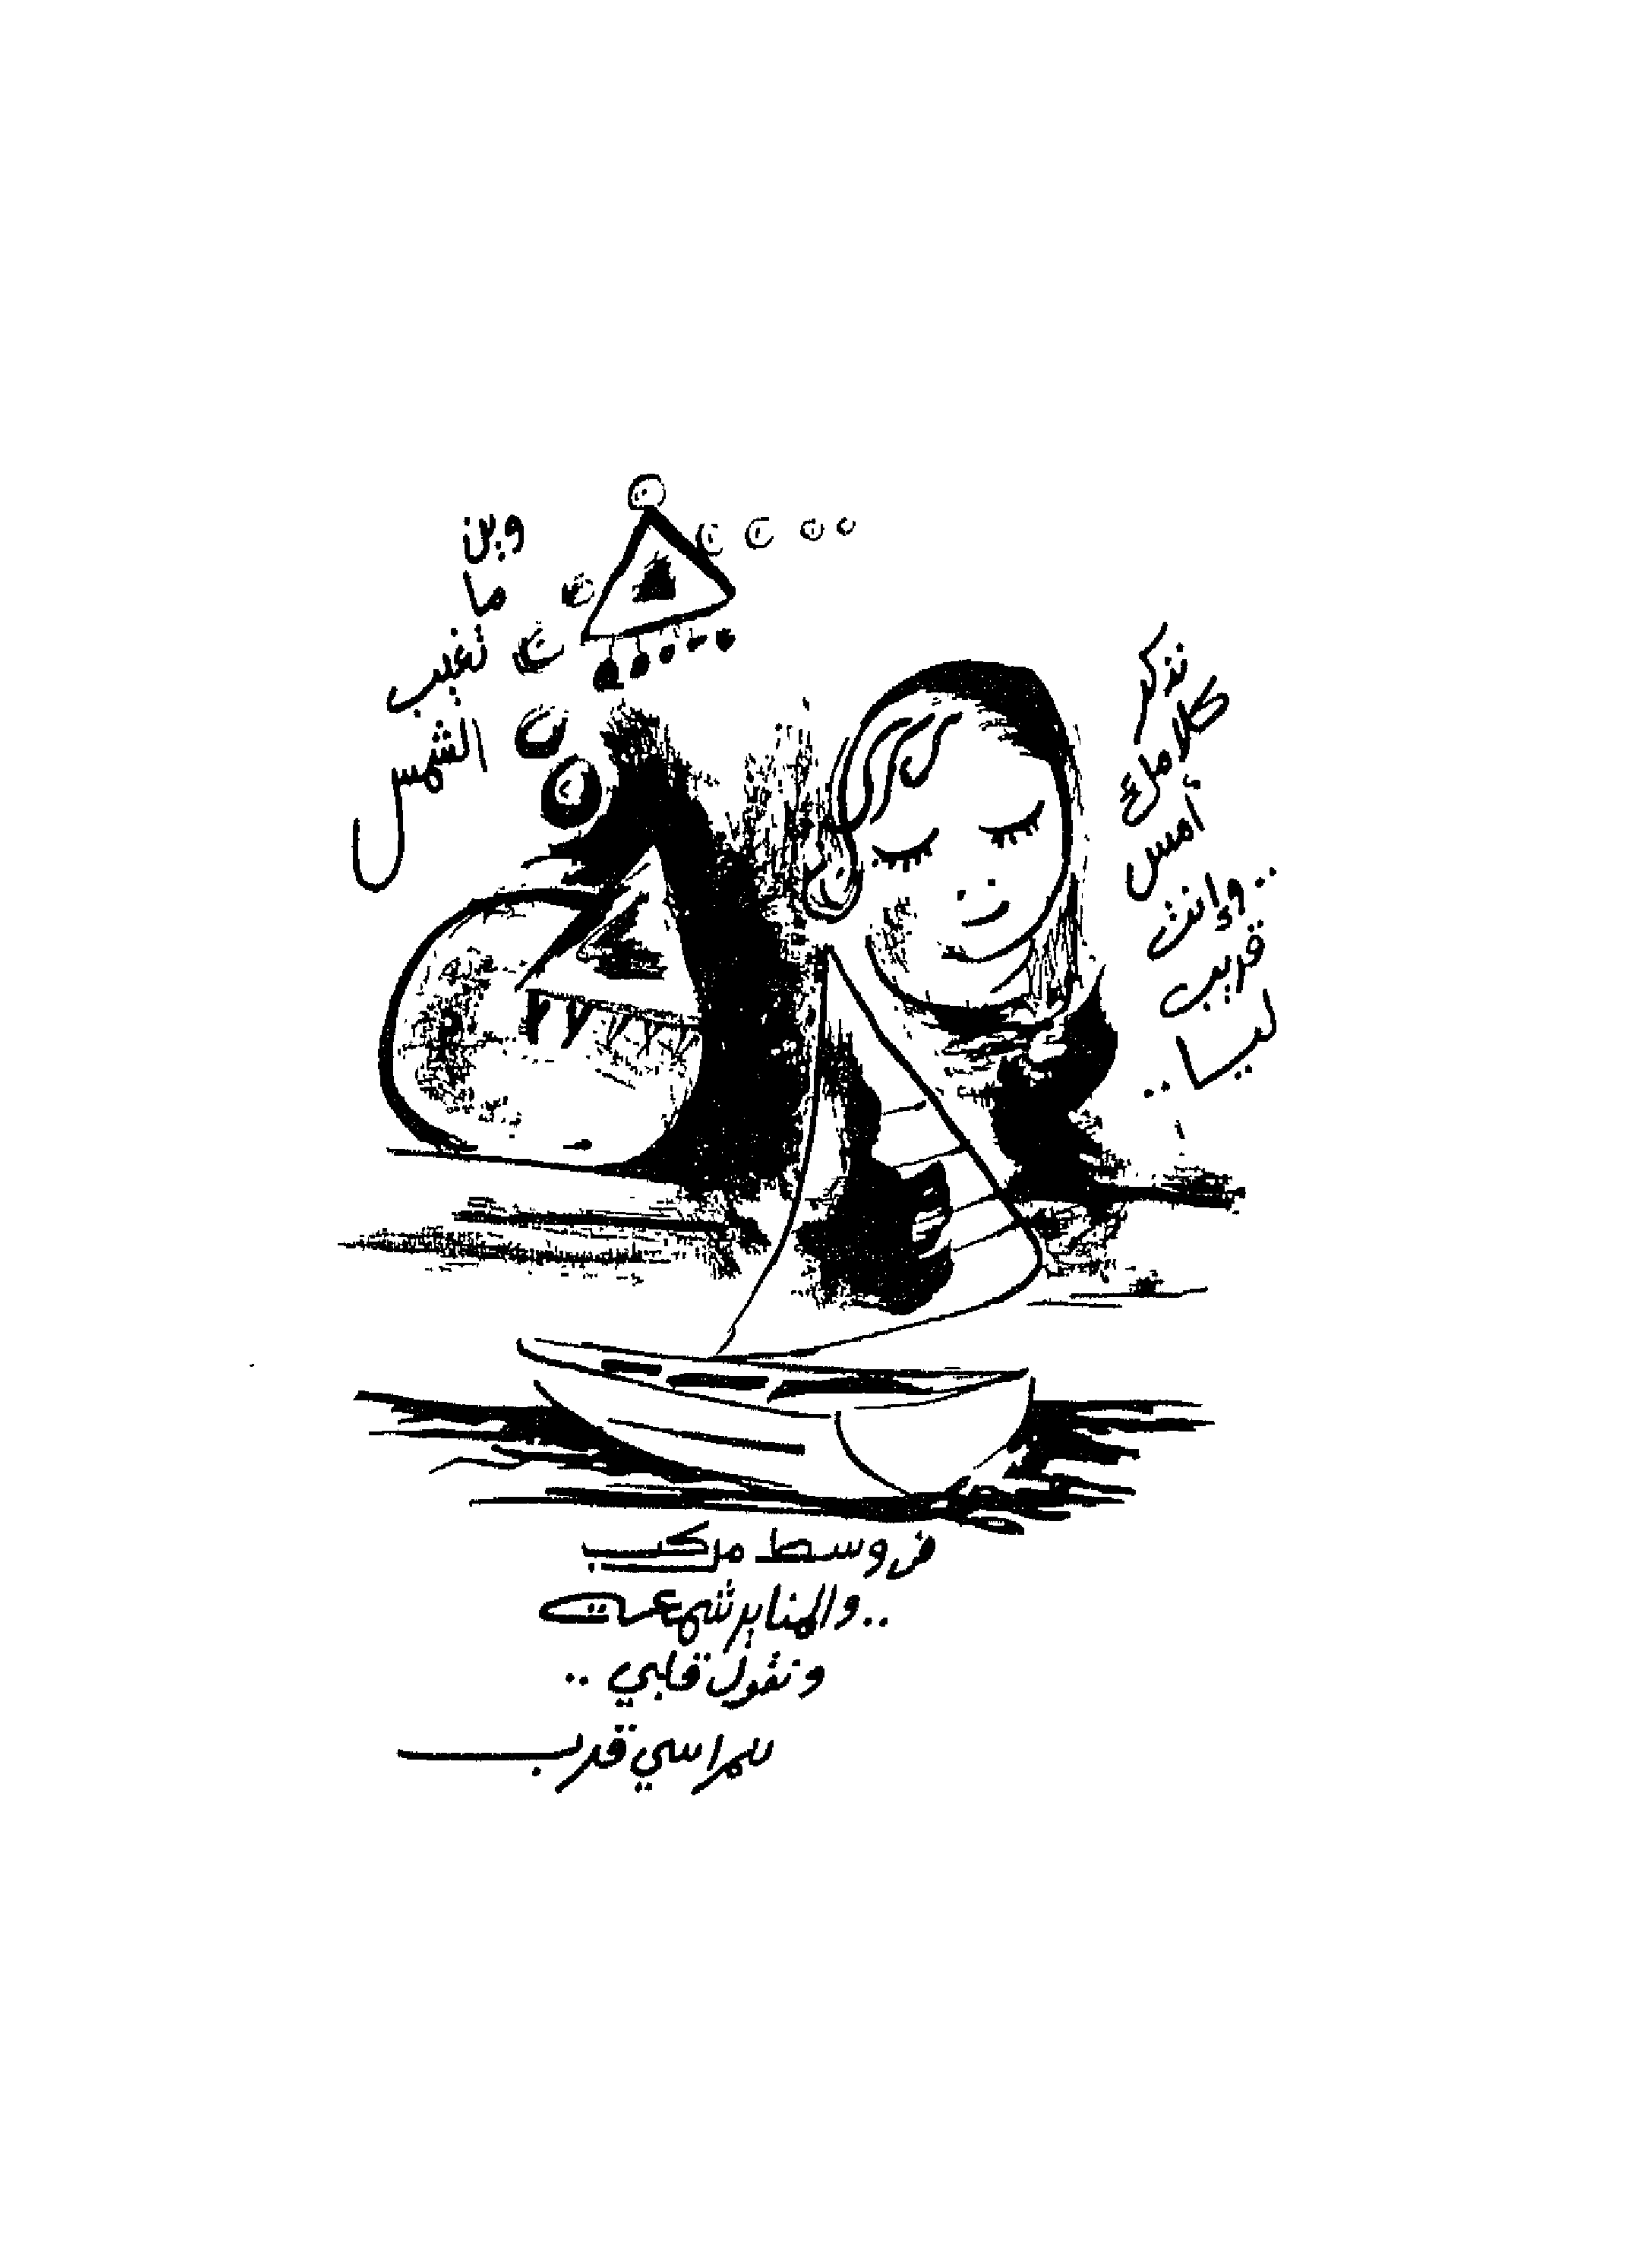 وين
ما
تغيب
الشمس
نذكر
كلامك ع
أمس
..وإنت
قريب
ليا..
في وسط مركب
..والمنابر شمعت
ونقول قلبي..
للمراسي قرب